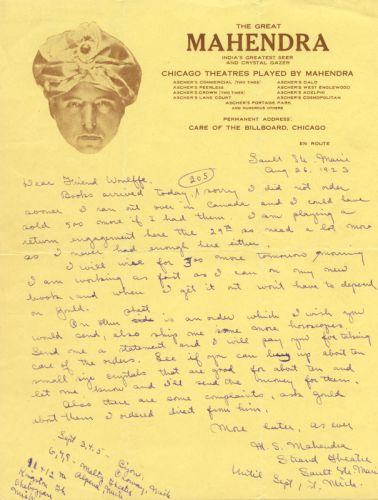 THE GREAT
MAHENDRA
INDIA'S GREATEST SEER
AND CRYSTAL GAZER
CHICAGO THEATRES PLAYED BY MAHENDRA
ASCHER'S COMMERCIAL (TWO TIMES)
ASCHER'S PEERLESS
ASCHER'S CROWN (TWO TIMES)
ASCHER'S LANE COURT
ASCHER'S CALO
ASCHER'S WEST ENGLEWOOD
ASCHER'S ADELPHI
ASCHER'S COSMOPOLITAN
ASCHER'S PORTAGE PARK
AND NUMEROUS OTHERS
PERMANENT ADDRESS:
CARE OF THE BILLBOARD, CHICAGO
EN ROUTE
Sault Ste Marie
Aug 26, 1923
205
Dear Friend Woulffe,
Books arrived today, sorry I did not order
sooner I ran out over in Canada and I could have
sold 500 more if I had them. I am playing a
return engagement here the 29th so need a lot more
as I never had enough here either.
I will wire for 300 more tomorrow morning
I am working as fast as I can on my new
books and when I get it out wont have to depend
on Gould. sheet
On other is an order which I wish you
would send, also ship me some more horoscopes.
Send me a statement and I will pay you for taking
care of the orders. See if you can buy up about ten
small size crystals that are good for about ten and
let me know and I'll send the money for them.
Also there are some complaints, ask Gould
about them I ordered direct from him.
More later, as ever
M. S. Mahendra
Strand Theatre
Sault Ste Marie
Until Sept 1, Mich.
Sept 3,4,5 -
6,7,8 - Mich
11 & 12 Mich
Cheboygan
Mich